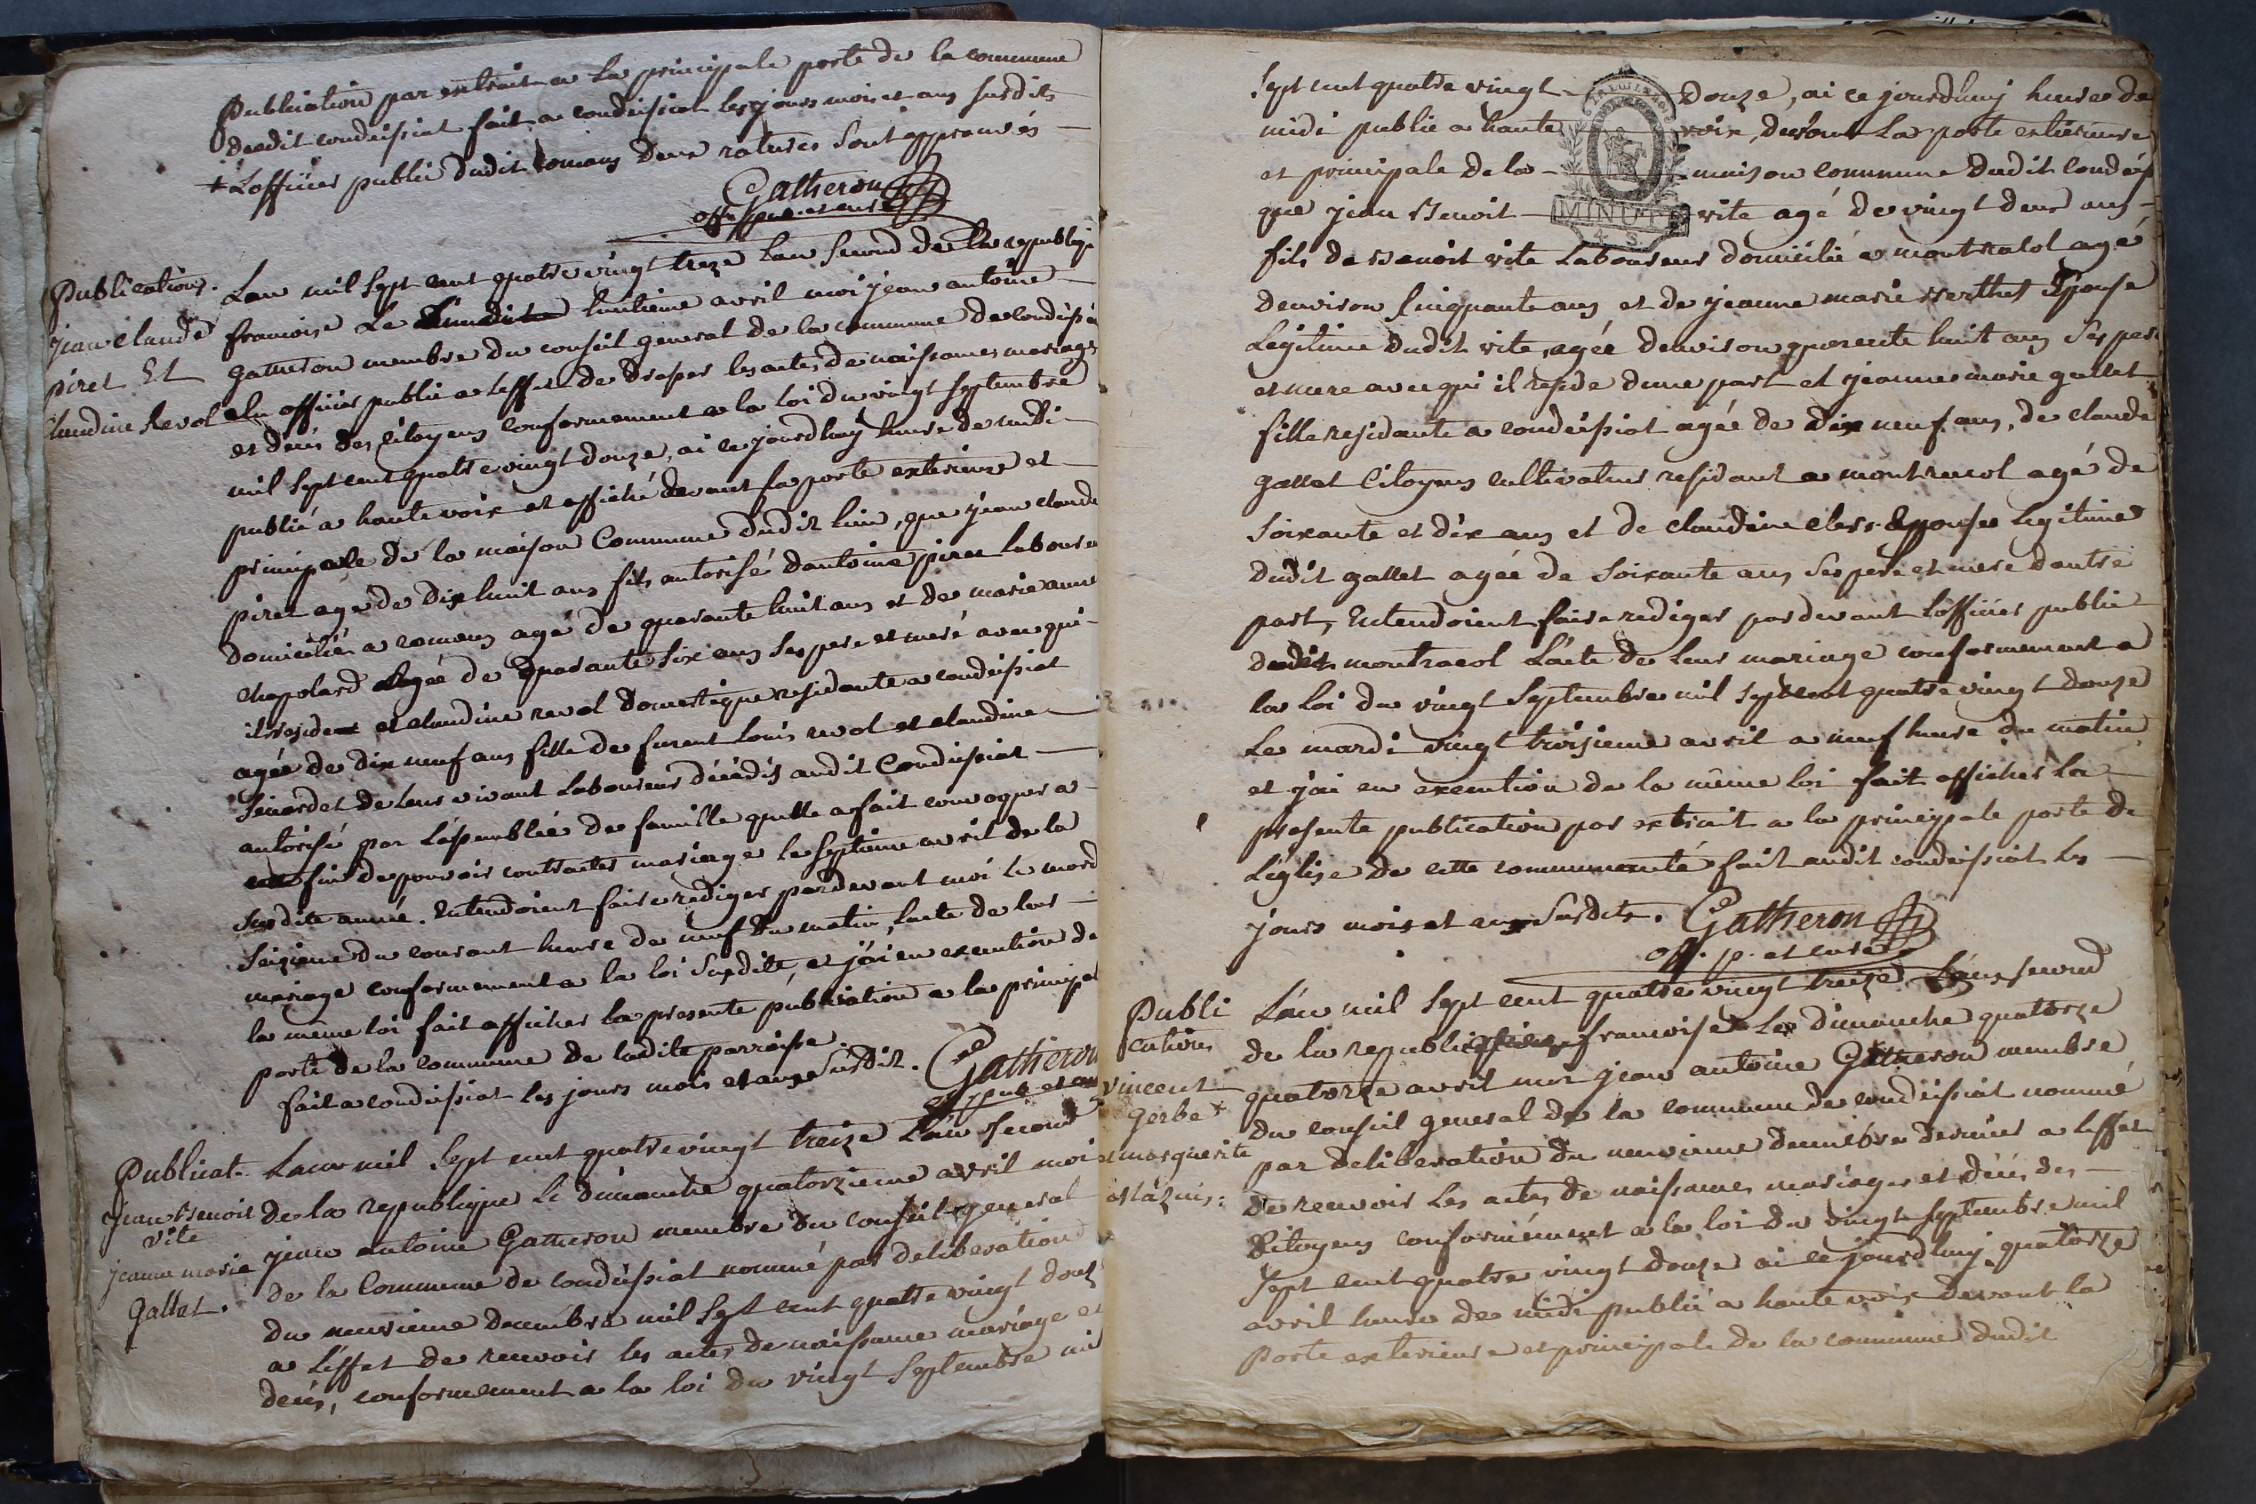 Publication par extrait a la principale porte de la commune
dudit condeissiat fait a condeissiat les jours mois et ans susdits
+ Lofficier public dudit romans deux ratures sont approuvés
Gatheron
off. pub. et curé
Publication.
jean claude
piret Et
claudine Revol
Lan mil sept cent quatre vingt treze lan second de la republiq
francoise Le huitieme avril moi jean antoine
gatheron membre du conseil general de la commune de condeissia
elu officier public a leffet de dresser les actes de naissances mariages
et decés des citoyens conformement a la loi du vingt septembre
mil sept cent quatre vingt douze, ai ce jourdhuy heure de midi
publié a haute voix et affiché devant la porte exterieure et
principale de la maison Commune dudit lieu, que jean claude
piret agé de dix huit ans fils autorisé dantoine piret laboureu
domicilié a romans agé de quarante huit ans et de marie anne
chapolard agée de quarante six ans ses pere et meré avec qui
il reside et claudine revol domestique residante a condeissiat
agée de dix neuf ans fille de furent louis revol et claudine
de leur vivant laboureurs décédés audit Condeissiat
autorisé par lassemblée de famille quelle a fait convoquer a
fin de pouvoir contracter mariage le septieme avril de la
susdite année. Entendoient faire rediger pardevant moi le mard
seizieme du courant heure de neuf du matin, lacte de leur
mariage conformement a la loi susdite, et jai en execution de
la même loi fait afficher la presente publication a la principal
porte de la commune de ladite parroisse.
fait a condeissiat les jours mois et ans susdit. Gatheron
off. pub. et curé
Publicat.
jean Benoit
vite
jeanne marie
gallet.
Lan mil sept cent quatre vingt treize Lan second
de la republique le dimanche quatorzieme avril moi
jean antoine Gatheron membre du conseil general
de la Commune de condeissiat nommé par deliberation
du neuvieme decembre mil sept cent quatre vingt douz
a leffet de recevoir les actes de naissance mariage et
decés, conformement a la loi du vingt septembre mil
sept cent quatre vingt douze, ai ce jourdhuy heure de
midi publié a haute voix devant La porte exterieure
et principale de la maison commune dudit condeiss
que jean Benoit vite agé de vingt deux ans
MINUTE
4. S.
fils de Benoit vite Laboureur domicilié a montracol agé
denviron cinquante ans et de jeanne marie Berthet Epouse
Legitime dudit vite, agée denviron quarente huit ans ses pere
et mere avec qui il reside dune part et jeanne marie gallet
fille residante a condeissiat agée de dix neuf ans, de claude
gallet citoyen cultivateur residant a montracol agé de
soixante et dix ans et de claudine clerc Epouse legitime
dudit gallet agée de soixante ans ses pere et mere dautre
part, Entendoient faire rediger par devant lofficier public
dudit montracol Lacte de leur mariage conformement a
la loi du vingt septembre mil sept cent quatre vingt douze
Le mardi vingt troisieme avril a neuf heure du matin
et jai en execution de la même loi fait afficher la
presente publication par extrait a la principale porte de
Léglise de cette communauté fait audit condeissiat les
jours mois et ans susdits. Gatheron
off. p. et curé
Publi
cation
vincent
gerbet
et marguerite
Lan mil sept cent quatre vingt treize Lan second
de la republique francoise Le dimanche quatorze
quatorze avril moi jean antoine Gatheron membre
du conseil general de la commune de condeissiat nommé
par deliberation du neuvieme decembre dernier a leffet
de recevoir les actes de naissances mariages et décés des
Citoyens conformément a la loi du vingt septembre mil
sept cent quatre vingt douze ai ce jourdhuy quatorze
avril heure de midi publié a haute voix devant la
Porte exterieure et principale de la commune dudit